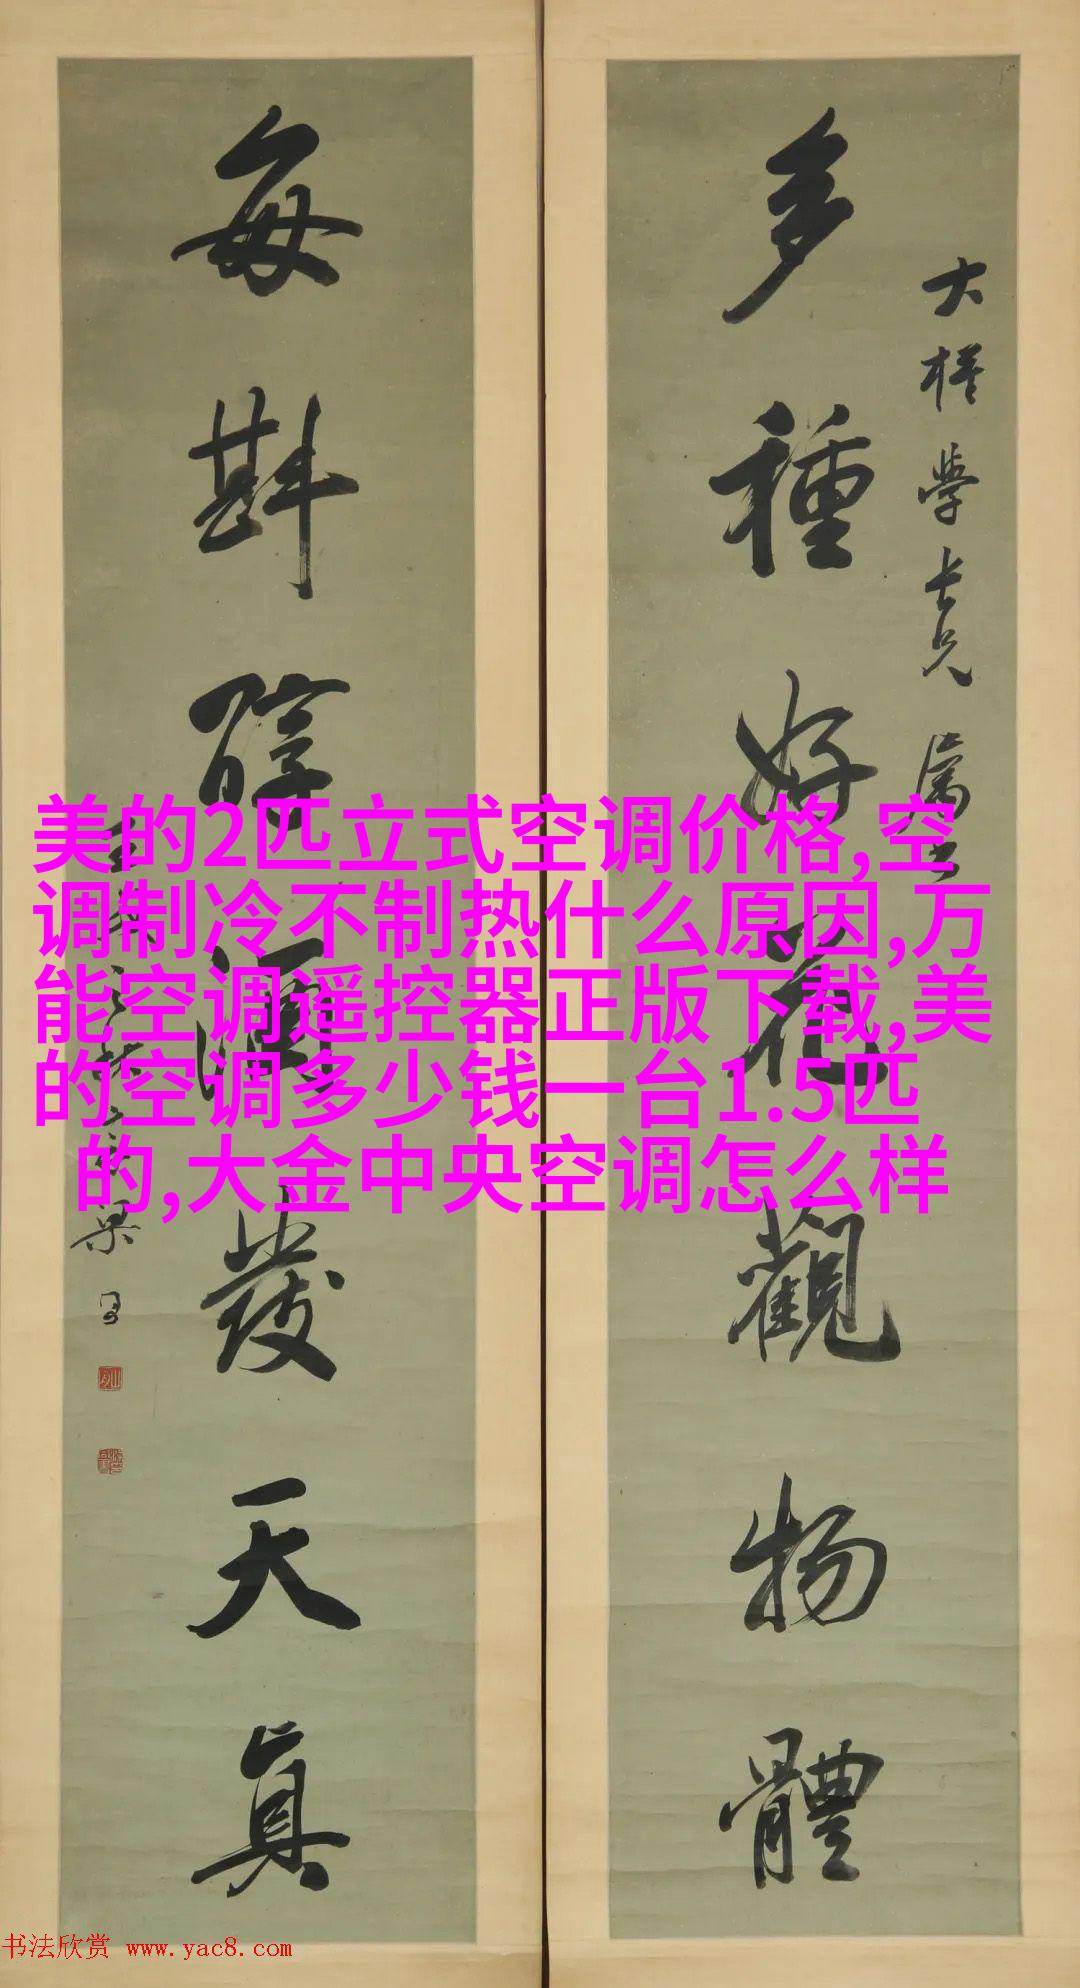 多種好花觀物體
大樽學長兄屬
每斟醇酒發天真
梁
美的2匹立式空调价格,空
调制冷不制热什么原因,万
能空调遥控器正版下载,美
的空调多少钱一台1.5匹
的,大金中央空调怎么样
书法欣赏 www.yac8.com